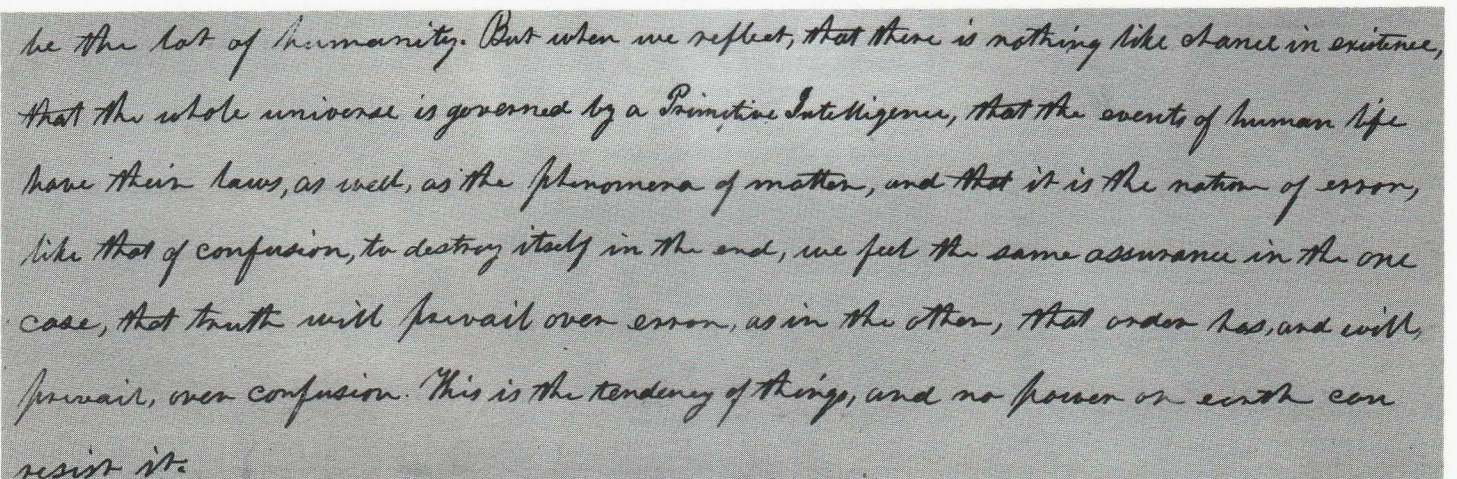 be the lot of humanity. But when we reflect, that there is nothing like chance in existence,
that the whole universe is governed by a Primitive Intelligence, that the events of human life
have their laws, as well, as the phenomena of matter, and that it is the nature of error,
like that of confusion, to destroy itself in the end, we feel the same assurance in the one
case, that truth will prevail over error, as in the other, that order has, and will,
prevail, over confusion. This is the tendency of things, and no power on earth can
resist it.